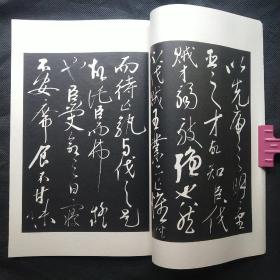 以先帝之明量
臣之才故知臣伐
賊才弱敵強也然
不伐賊王業亦亡惟坐
而待亡孰與伐之是
故託臣而弗疑
也臣受命之日寢
不安席食不甘味